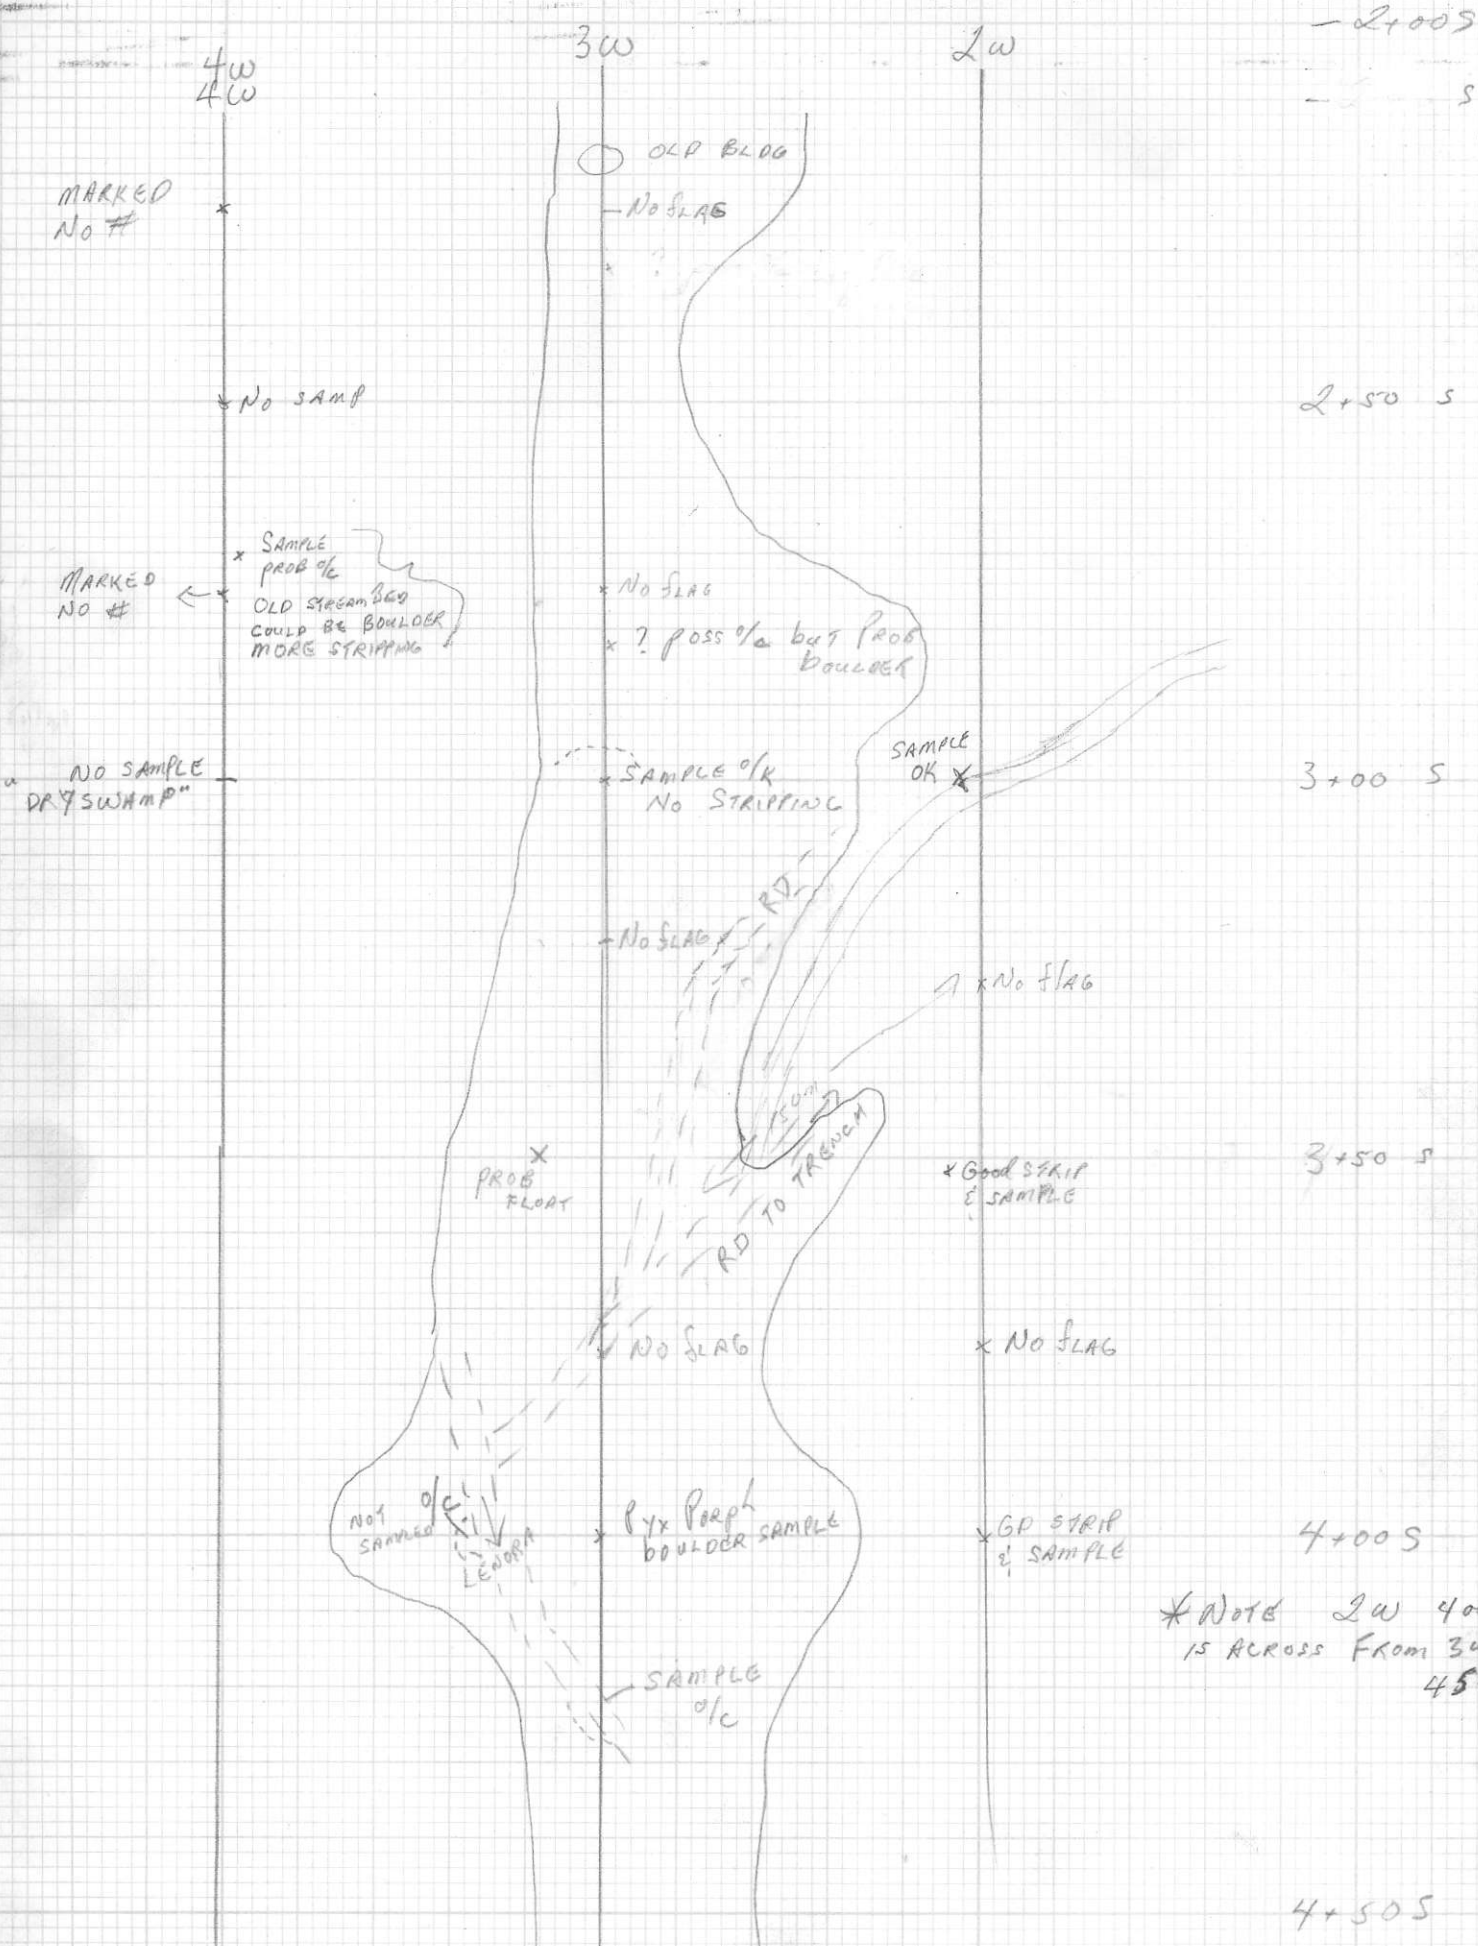 - 2+00S
3W
2W
4W
4W
S
OLD BLDG
MARKED
NO #
NO FLAG
?
NO SAMP
2+50 S
SAMPLE
PROB O/C
OLD STREAM BED
COULD BE BOULDER
MORE STRIPPING
MARKED
NO #
NO FLAG
? POSS O/C but PROB
BOULDER
SAMPLE
OK
"NO SAMPLE
DRY SWAMP"
SAMPLE O/K
NO STRIPPING
3+00 S
RD
NO FLAG
NO FLAG
150m
RD TO TRENCH
PROB
FLOAT
GOOD STRIP
& SAMPLE
3+50 S
NO FLAG
NO FLAG
NOT
SAMPLED
O/C
LENORA
Pyx PORPh
BOULDER SAMPLE
GD STRIP
& SAMPLE
4+00S
* NOTE 2W 40
IS ACROSS FROM 3W
45
SAMPLE
O/C
4+50S